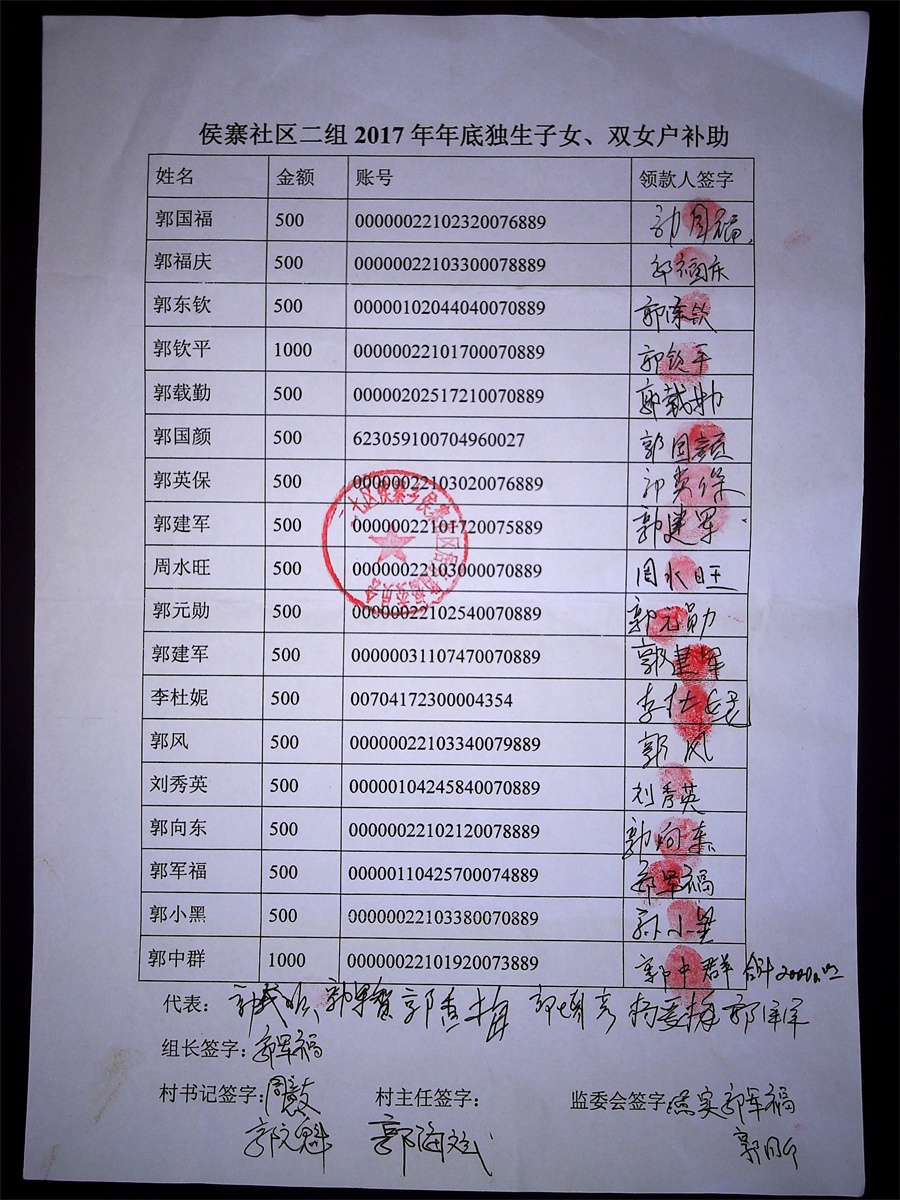 侯寨社区二组 2017 年年底独生子女、双女户补助
姓名 金额 账号 领款人签字
郭国福 500 00000022102320076889 郭国福
郭福庆 500 00000022103300078889 郭福庆
郭东钦 500 00000102044040070889 郭东钦
郭钦平 1000 00000022101700070889 郭钦平
郭载勤 500 00000202517210070889 郭载勤
郭国颜 500 623059100704960027 郭国颜
郭英保 500 00000022103020076889 郭英保
郭建军 500 00000022101720075889 郭建军
周水旺 500 00000022103000070889 周水旺
郭元勋 500 00000022102540070889 郭元勋
郭建军 500 00000031107470070889 郭建军
李杜妮 500 00704172300004354 李杜妮
郭风 500 00000022103340079889 郭风
刘秀英 500 00000104245840070889 刘秀英
郭向东 500 00000022102120078889 郭向东
郭军福 500 00000110425700074889 郭军福
郭小黑 500 00000022103380070889 郭小黑
郭中群 1000 00000022101920073889 郭中群
代表：
组长签字：郭军福
村书记签字： 村主任签字： 监委会签字 郭军福
郭文魁 郭海斌